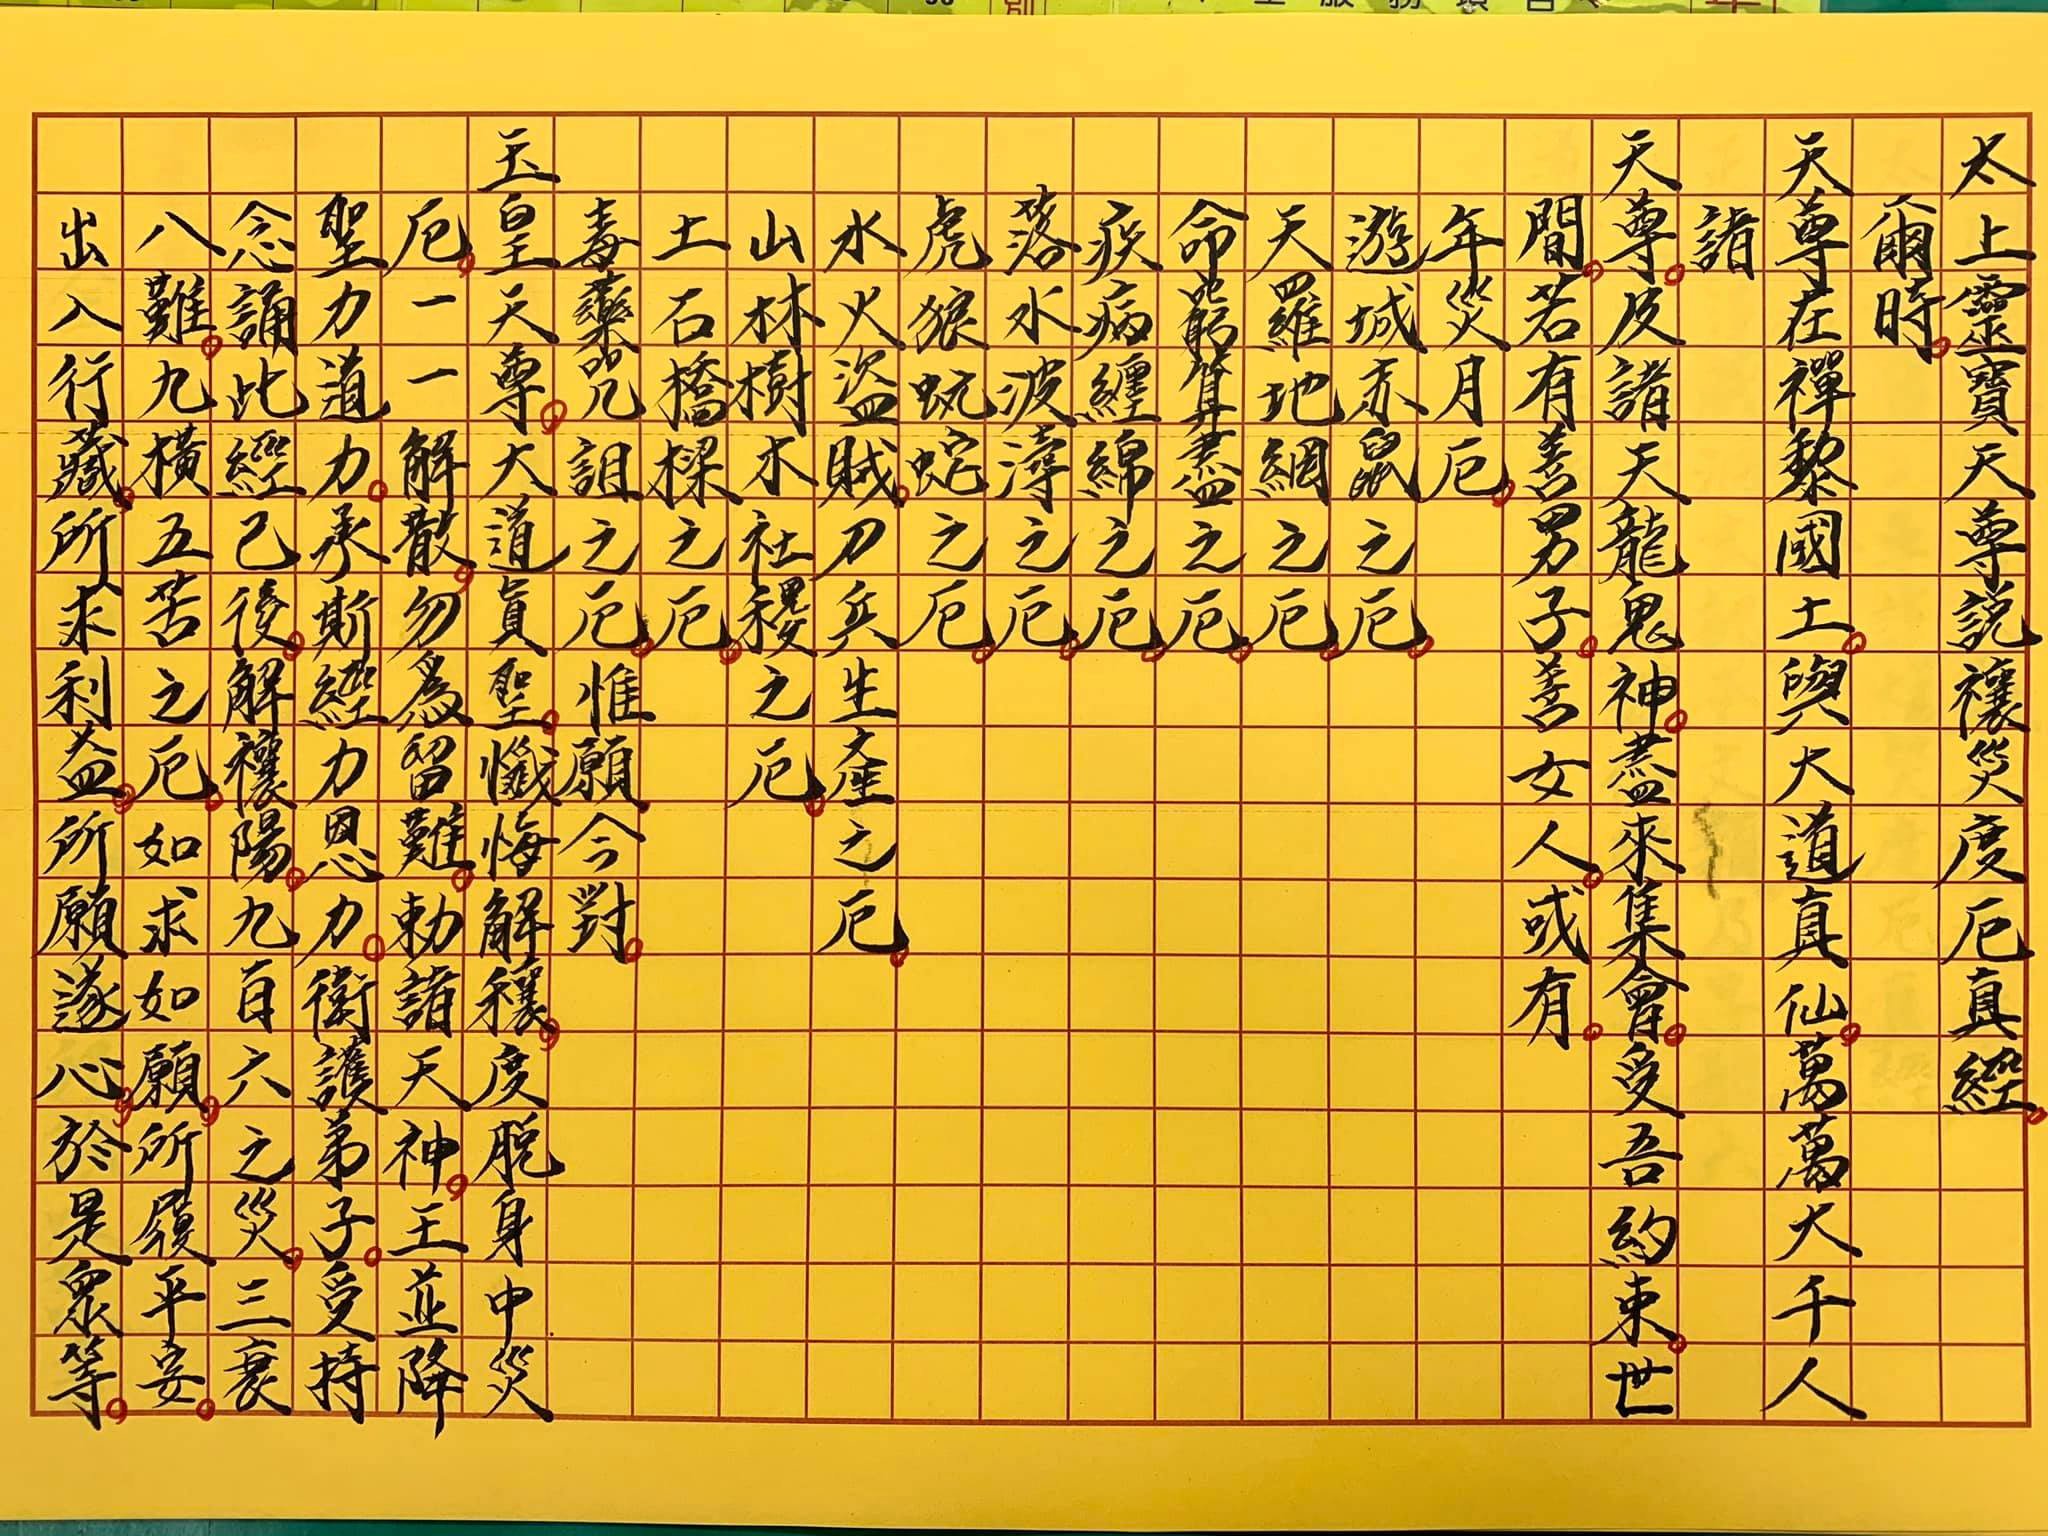 太上靈寶天尊説禳災度厄真經。
爾時。
天尊在禪黎國土。與大道真仙。萬萬大千人
諸
天尊。及諸天龍鬼神。盡來集會。受吾約束。世
間。若有善男子。善女人。或有。
年災月厄。
遊城赤鼠之厄。
天羅地網之厄。
命窮算盡之厄。
疾病纏綿之厄。
落水波濤之厄。
虎狼蚖蛇之厄。
水火盜賊。刀兵生產之厄。
山林樹木社稷之厄。
土石橋樑之厄。
毒藥咒詛之厄。惟願今對。
玉皇天尊。大道真聖。懺悔解穰。度脫身中災
厄。一一解散。勿為留難。勅諸天神。王並降
聖力道力。承斯經力恩力。衛護弟子。受持
念誦此經已後。解禳陽。九百六之災。三衰
八難。九橫五苦之厄。如求如願。所履平安。
出入行藏。所求利益。所願遂心。於是眾等。